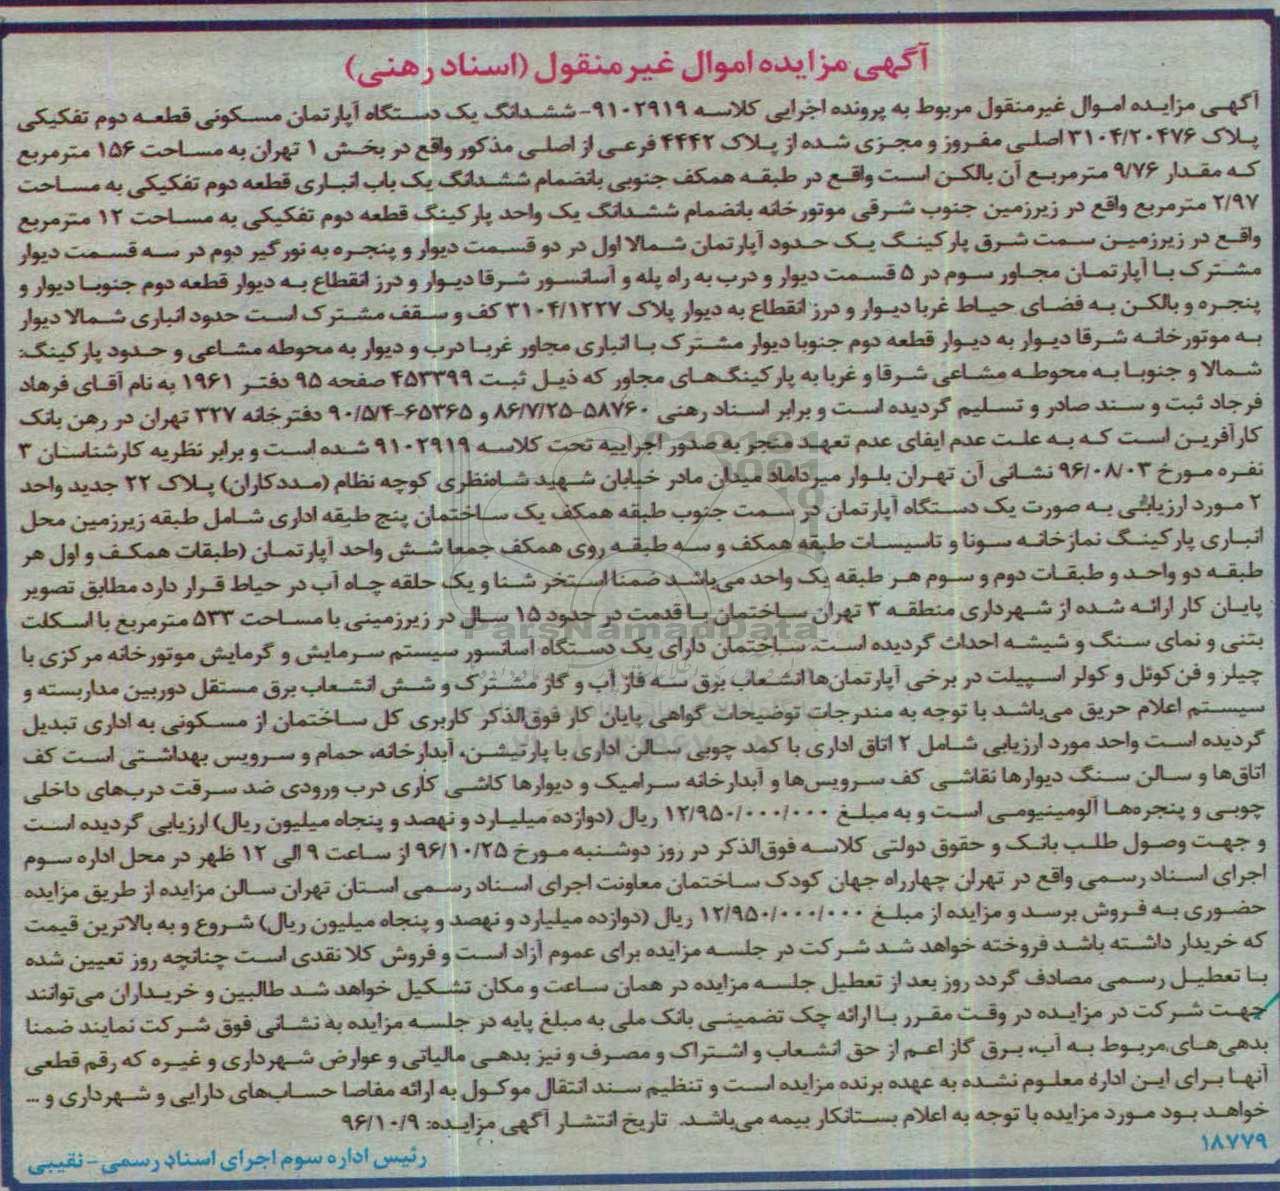 آگهی مزایده اموال غیرمنقول (اسناد رهنی)
آگهی مزایده اموال غیرمنقول مربوط به پرونده اجرایی کلاسه ۹۱۰۲۹۱۹- ششدانگ یک دستگاه آپارتمان مسکونی قطعه دوم تفکیکی
پلاک ۳۱۰۴/۲۰۴۷۶ اصلی مفروز و مجزی شده از پلاک ۴۴۴۲ فرعی از اصلی مذکور واقع در بخش ۱ تهران به مساحت ۱۵۶ مترمربع
که مقدار ۹/۷۶ مترمربع آن بالکن است واقع در طبقه همکف جنوبی بانضمام ششدانگ یک باب انباری قطعه دوم تفکیکی به مساحت
۲/۹۷ مترمربع واقع در زیرزمین جنوب شرقی موتورخانه بانضمام ششدانگ یک واحد پارکینگ قطعه دوم تفکیکی به مساحت ۱۲ مترمربع
واقع در زیرزمین سمت شرق پارکینگ یک حدود آپارتمان شمالا اول در دو قسمت دیوار و پنجره به نورگیر دوم در سه قسمت دیوار
مشترک با آپارتمان مجاور سوم در ۵ قسمت دیوار و درب به راه پله و آسانسور شرقا دیوار و درز انقطاع به دیوار قطعه دوم جنوبا دیوار و
پنجره و بالکن به فضای حیاط غربا دیوار و درز انقطاع به دیوار پلاک ۳۱۰۴/۱۲۲۷ کف و سقف مشترک است حدود انباری شمالا دیوار
به موتورخانه شرقا دیوار به دیوار قطعه دوم جنوبا دیوار مشترک با انباری مجاور غربا درب و دیوار به محوطه مشاعی و حدود پارکینگ:
شمالا و جنوبا به محوطه مشاعی شرقا و غربا به پارکینگ‌های مجاور که ذیل ثبت ۴۵۳۳۹۹ صفحه ۹۵ دفتر ۱۹۶۱ به نام آقای فرهاد
فرجاد ثبت و سند صادر و تسلیم گردیده است و برابر اسناد رهنی ۵۸۷۶۰-۸۶/۷/۲۵ و ۶۵۳۶۵-۹۰/۵/۴ دفترخانه ۳۲۷ تهران در رهن بانک
کارآفرین است که به علت عدم ایفای عدم تعهد منجر به صدور اجراییه تحت کلاسه ۹۱۰۲۹۱۹ شده است و برابر نظریه کارشناسان ۳
نفره مورخ ۹۶/۰۸/۰۳ نشانی آن تهران بلوار میرداماد میدان مادر خیابان شهید شاه‌نظری کوچه نظام (مددکاران) پلاک ۲۲ جدید واحد
۲ مورد ارزیابی به صورت یک دستگاه آپارتمان در سمت جنوب طبقه همکف یک ساختمان پنج طبقه اداری شامل طبقه زیرزمین محل
انباری پارکینگ نمازخانه سونا و تاسیسات طبقه همکف و سه طبقه روی همکف جمعا شش واحد آپارتمان (طبقات همکف و اول هر
طبقه دو واحد و طبقات دوم و سوم هر طبقه یک واحد می‌باشد ضمنا استخر شنا و یک حلقه چاه آب در حیاط قرار دارد مطابق تصویر
پایان کار ارائه شده از شهرداری منطقه ۳ تهران ساختمان با قدمت در حدود ۱۵ سال در زیرزمینی با مساحت ۵۳۳ مترمربع با اسکلت
بتنی و نمای سنگ و شیشه احداث گردیده است. ساختمان دارای یک دستگاه آسانسور سیستم سرمایش و گرمایش موتورخانه مرکزی با
چیلر و فن‌کوئل و کولر اسپیلت در برخی آپارتمان‌ها انشعاب برق سه فاز آب و گاز مشترک و شش انشعاب برق مستقل دوربین مداربسته و
سیستم اعلام حریق می‌باشد با توجه به مندرجات توضیحات گواهی پایان کار فوق‌الذکر کاربری کل ساختمان از مسکونی به اداری تبدیل
گردیده است واحد مورد ارزیابی شامل ۲ اتاق اداری با کمد چوبی سالن اداری با پارتیشن، آبدارخانه، حمام و سرویس بهداشتی است کف
اتاق‌ها و سالن سنگ دیوارها نقاشی کف سرویس‌ها و آبدارخانه سرامیک و دیوارها کاشی کاری درب ورودی ضد سرقت درب‌های داخلی
چوبی و پنجره‌ها آلومینیومی است و به مبلغ ۱۲/۹۵۰/۰۰۰/۰۰۰ ریال (دوازده میلیارد و نهصد و پنجاه میلیون ریال) ارزیابی گردیده است
و جهت وصول طلب بانک و حقوق دولتی کلاسه فوق‌الذکر در روز دوشنبه مورخ ۹۶/۱۰/۲۵ از ساعت ۹ الی ۱۲ ظهر در محل اداره سوم
اجرای اسناد رسمی واقع در تهران چهارراه جهان کودک ساختمان معاونت اجرای اسناد رسمی استان تهران سالن مزایده از طریق مزایده
حضوری به فروش برسد و مزایده از مبلغ ۱۲/۹۵۰/۰۰۰/۰۰۰ ریال (دوازده میلیارد و نهصد و پنجاه میلیون ریال) شروع و به بالاترین قیمت
که خریدار داشته باشد فروخته خواهد شد شرکت در جلسه مزایده برای عموم آزاد است و فروش کلا نقدی است چنانچه روز تعیین شده
با تعطیل رسمی مصادف گردد روز بعد از تعطیل جلسه مزایده در همان ساعت و مکان تشکیل خواهد شد طالبین و خریداران می‌توانند
جهت شرکت در مزایده در وقت مقرر با ارائه چک تضمینی بانک ملی به مبلغ پایه در جلسه مزایده به نشانی فوق شرکت نمایند ضمنا
بدهی‌های مربوط به آب، برق گاز اعم از حق انشعاب و اشتراک و مصرف و نیز بدهی مالیاتی و عوارض شهرداری و غیره که رقم قطعی
آنها برای این اداره معلوم نشده به عهده برنده مزایده است و تنظیم سند انتقال موکول به ارائه مفاصا حساب‌های دارایی و شهرداری و ...
خواهد بود مورد مزایده با توجه به اعلام بستانکار بیمه می‌باشد. تاریخ انتشار آگهی مزایده: ۹۶/۱۰/۹
۱۸۷۷۹
رئیس اداره سوم اجرای اسناد رسمی- نقیبی
ParsNamadData